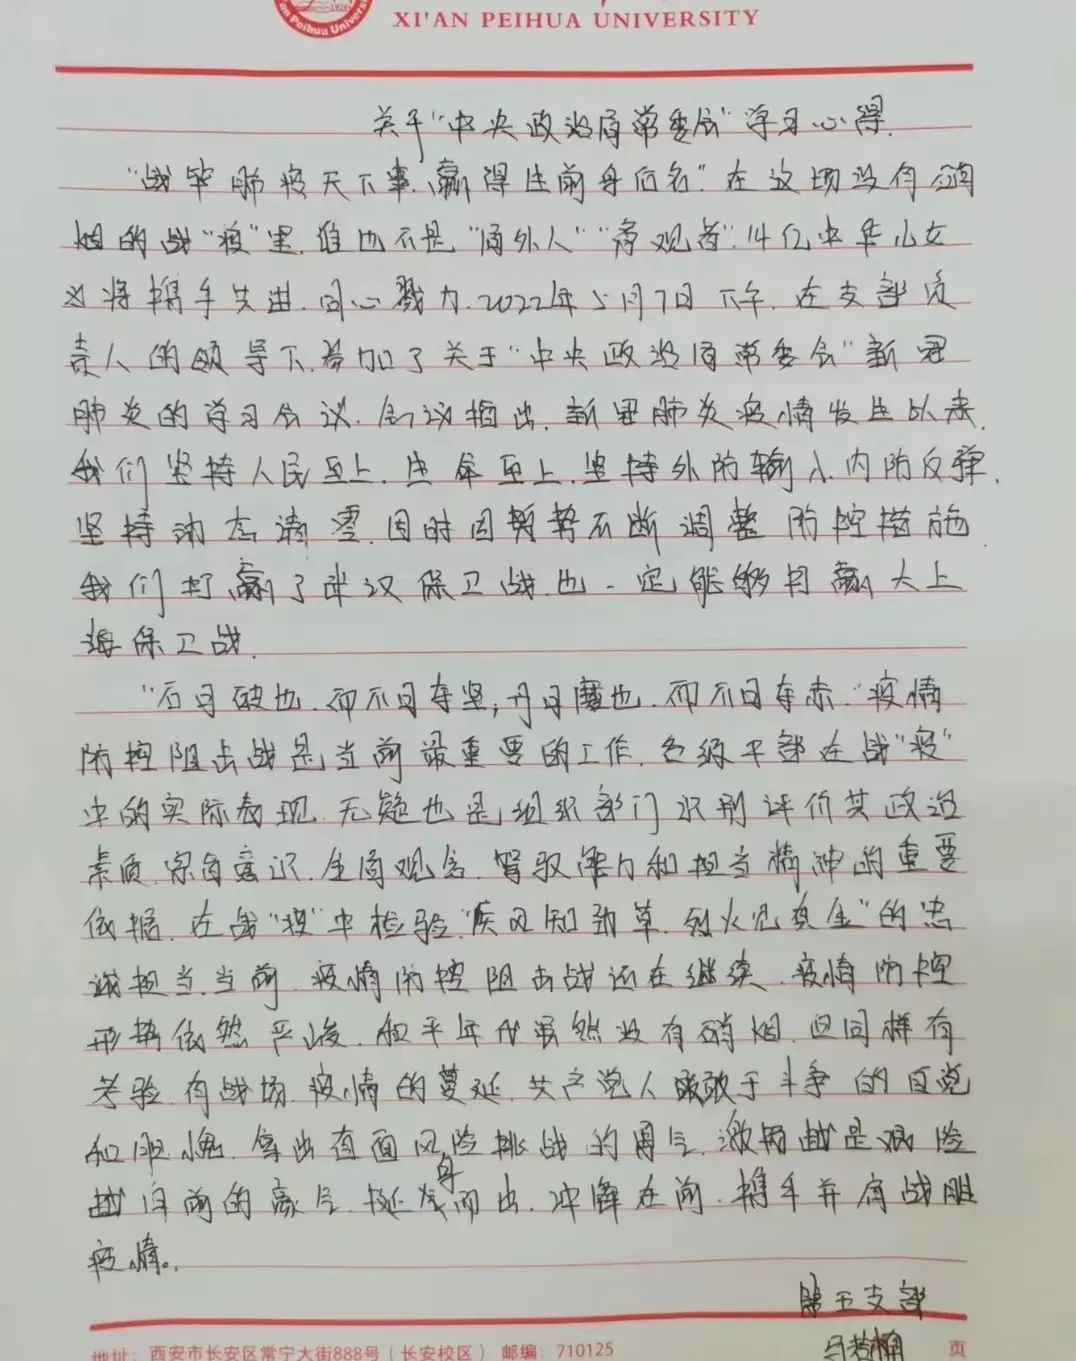 XI'AN PEIHUA UNIVERSITY
关于"中央政治局常委会"学习心得.
"战毕肺疫天下事.赢得生前身后名".在这场没有硝
烟的战"疫"里.谁也不是"局外人""旁观者".14亿中华儿女
必将携手共进.同心戮力.2022年5月7日下午.在支部负
责人的领导下.参加了关于"中央政治局常委会"新冠
肺炎的学习会议.会议指出.新冠肺炎疫情发生以来.
我们坚持人民至上.生命至上.坚持外防输入.内防反弹.
坚持动态清零.因时因势不断调整防控措施.
我们打赢了武汉保卫战.也一定能够打赢大上
海保卫战.
"石可破也.而不可夺坚;丹可磨也.而不可夺赤."疫情
防控阻击战是当前最重要的工作.各级干部在战"疫"
中的实际表现.无疑也是组织部门识别评价其政治
素质.宗旨意识.全局观念.驾驭能力和担当精神的重要
依据.在战"疫"中检验"疾风知劲草.烈火见真金"的忠
诚担当.当前.疫情防控阻击战还在继续.疫情防控
形势依然严峻.和平年代虽然没有硝烟.但同样有
考验.有战场.疫情的蔓延.共产党人敢于斗争的自觉
和胆魄.拿出直面风险挑战的勇气.激扬越是艰险
越向前的豪气.挺身而出.冲锋在前.携手并肩战胜
疫情。
第五支部
地址：西安市长安区常宁大街888号（长安校区） 邮编：710125
页